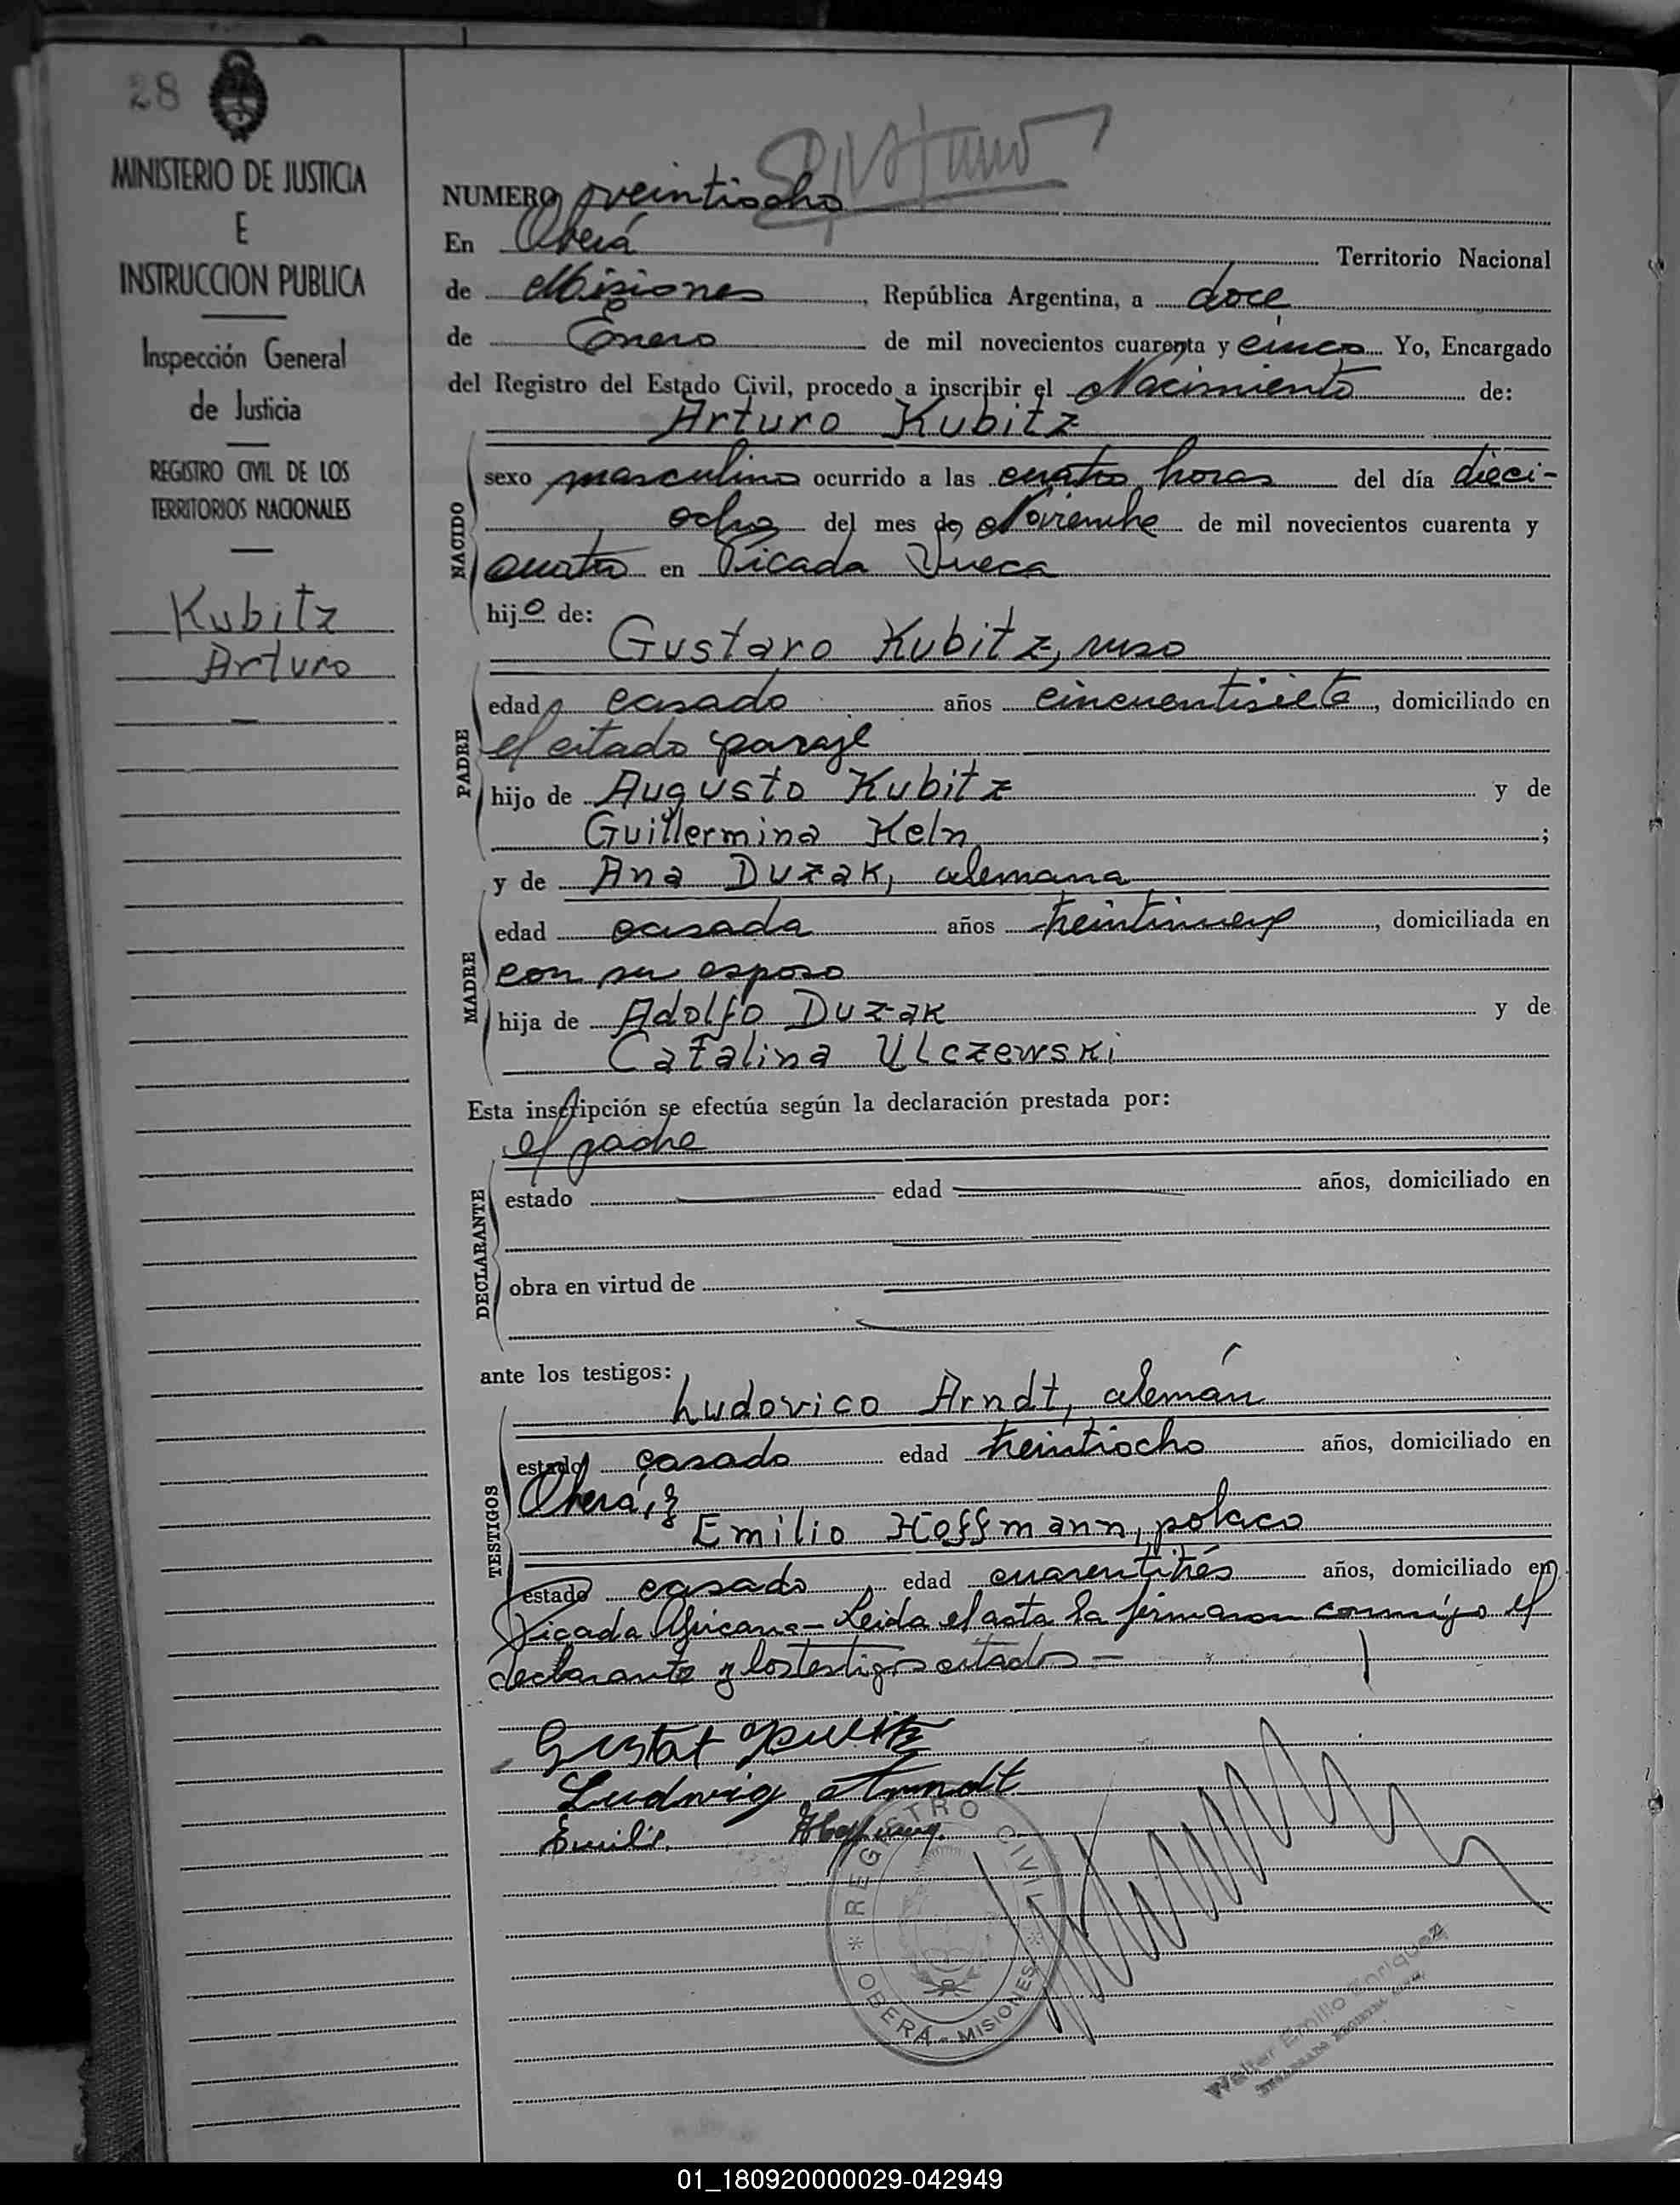 28
MINISTERIO DE JUSTICIA
E
INSTRUCCION PUBLICA
Inspección General
de Justicia
REGISTRO CIVIL DE LOS
TERRITORIOS NACIONALES
Kubitz
Arturo
NUMERO veintiocho
En Oberá Territorio Nacional
de Misiones, República Argentina, a doce
de Enero de mil novecientos cuarenta y cinco Yo, Encargado
del Registro del Estado Civil, procedo a inscribir el Nacimiento de:
Arturo Kubitz
NACIDO
sexo masculino ocurrido a las cuatro horas del día dieci-
ocho del mes de Noviembre de mil novecientos cuarenta y
cuatro en Picada Sueca
hijo de:
Gustavo Kubitz, ruso
PADRE
edad casado años cincuentisiete, domiciliado en
el citado paraje
hijo de Augusto Kubitz y de
Guillermina Keln;
y de Ana Duzak, alemana
MADRE
edad casada años treintinueve, domiciliada en
con su esposo
hija de Adolfo Duzak y de
Catalina Ulczewski
Esta inscripción se efectúa según la declaración prestada por:
el padre
DECLARANTE
estado edad años, domiciliado en
obra en virtud de
ante los testigos:
Ludovico Arndt, alemán
TESTIGOS
estado casado edad treintiocho años, domiciliado en
Oberá, y
Emilio Hoffmann, polaco
estado casado, edad cuarentitrés años, domiciliado en
Picada Africana - Leida el acta la firmaron conmigo el
declarante y los testigos citados -
Gustaf Kubitz
Ludwig Arndt
Emilie Hoffmann
REGISTRO CIVIL
OBERÁ - MISIONES
Walter Emilio Enriquez
01_180920000029-042949